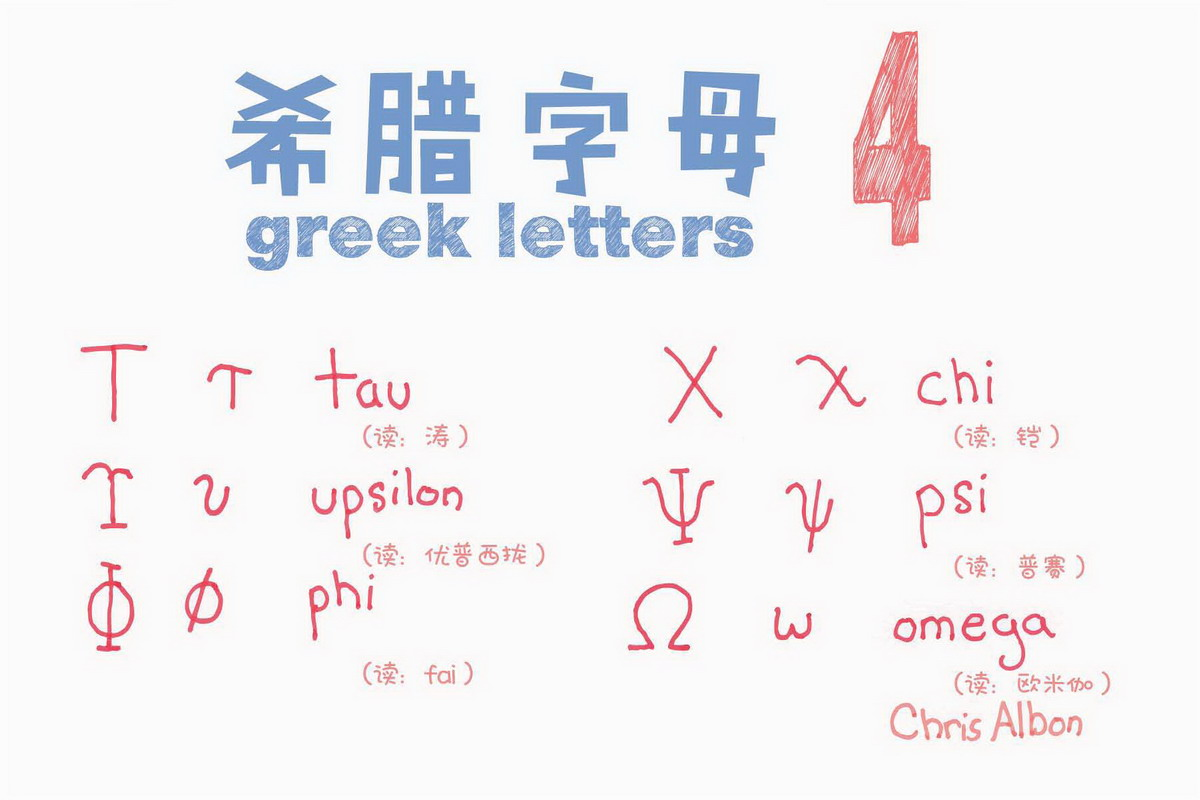 希腊字母 4
greek letters
Τ τ tau
(读：涛)
ϒ υ upsilon
(读：优普西拢)
Φ ϕ phi
(读：fai)
Χ χ chi
(读：铠)
Ψ ψ psi
(读：普赛)
Ω ω omega
(读：欧米伽)
Chris Albon